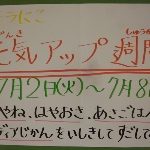 うにこ
じんき しゅうか
元気アップ週間
7月2日(火)~7月8
やね、はやおき、あさごは
ディアじかんをいしきしてすごして